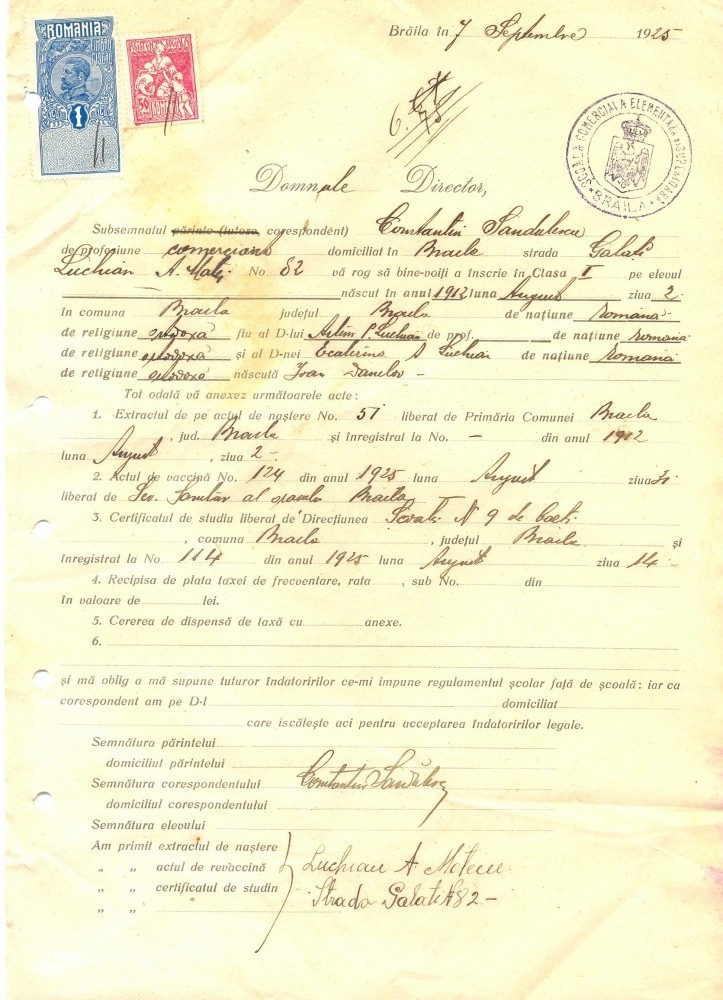 ROMANIA
TIMBRU FISCAL
1
50
Brăila în 7 Septembrie 1925
6.
ȘCOALA COMERCIALA ELEMENTARĂ
* BRĂILA *
Domnule Director,
Subsemnatul părinte (tutore, corespondent) Constantin Sandulescu
de profesiune comerciant domiciliat în Braila strada Galati
Luchian A. No. 82 vă rog să bine-voiți a înscrie în Clasa I pe elevul
născut în anul 1912 luna August ziua 2
în comuna Braila județul Braila de națiune romana
de religiune ortodoxă fiu al D-lui Artin P. Luchian de prof. de națiune romana
de religiune ortodoxă și al D-nei Ecaterina A Luchian de națiune Romana
de religiune ortodoxă născută Ioan Danelov -
Tot odată vă anexez următoarele acte:
1. Extractul de pe actul de naștere No. 51 liberat de Primăria Comunei Braila
, jud. Braila și înregistrat la No. - din anul 1912
luna August, ziua 2 -
2. Actul de vaccină No. 124 din anul 1925 luna August ziua 31
liberat de Ser. Sanitar al orasului Braila
3. Certificatul de studiu liberat de Direcțiunea N 9 de baeti
, comuna Braila, județul Braila și
înregistrat la No. 114 din anul 1925 luna August ziua 14 -
4. Recipisa de plata taxei de frecventare, rata , sub No. din
în valoare de lei.
5. Cererea de dispensă de taxă cu anexe.
6.
și mă oblig a mă supune tuturor îndatoririlor ce-mi impune regulamentul școlar față de școală: iar ca
corespondent am pe D-l domiciliat
care iscălește aci pentru acceptarea îndatoririlor legale.
Semnătura părintelui
domiciliul părintelui
Semnătura corespondentului Constantin Sandulescu
domiciliul corespondentului
Semnătura elevului
Am primit extractul de naștere
„ „ actul de revaccină Luchian A.
„ „ certificatul de studin Strada Galati N 82 -
„ „